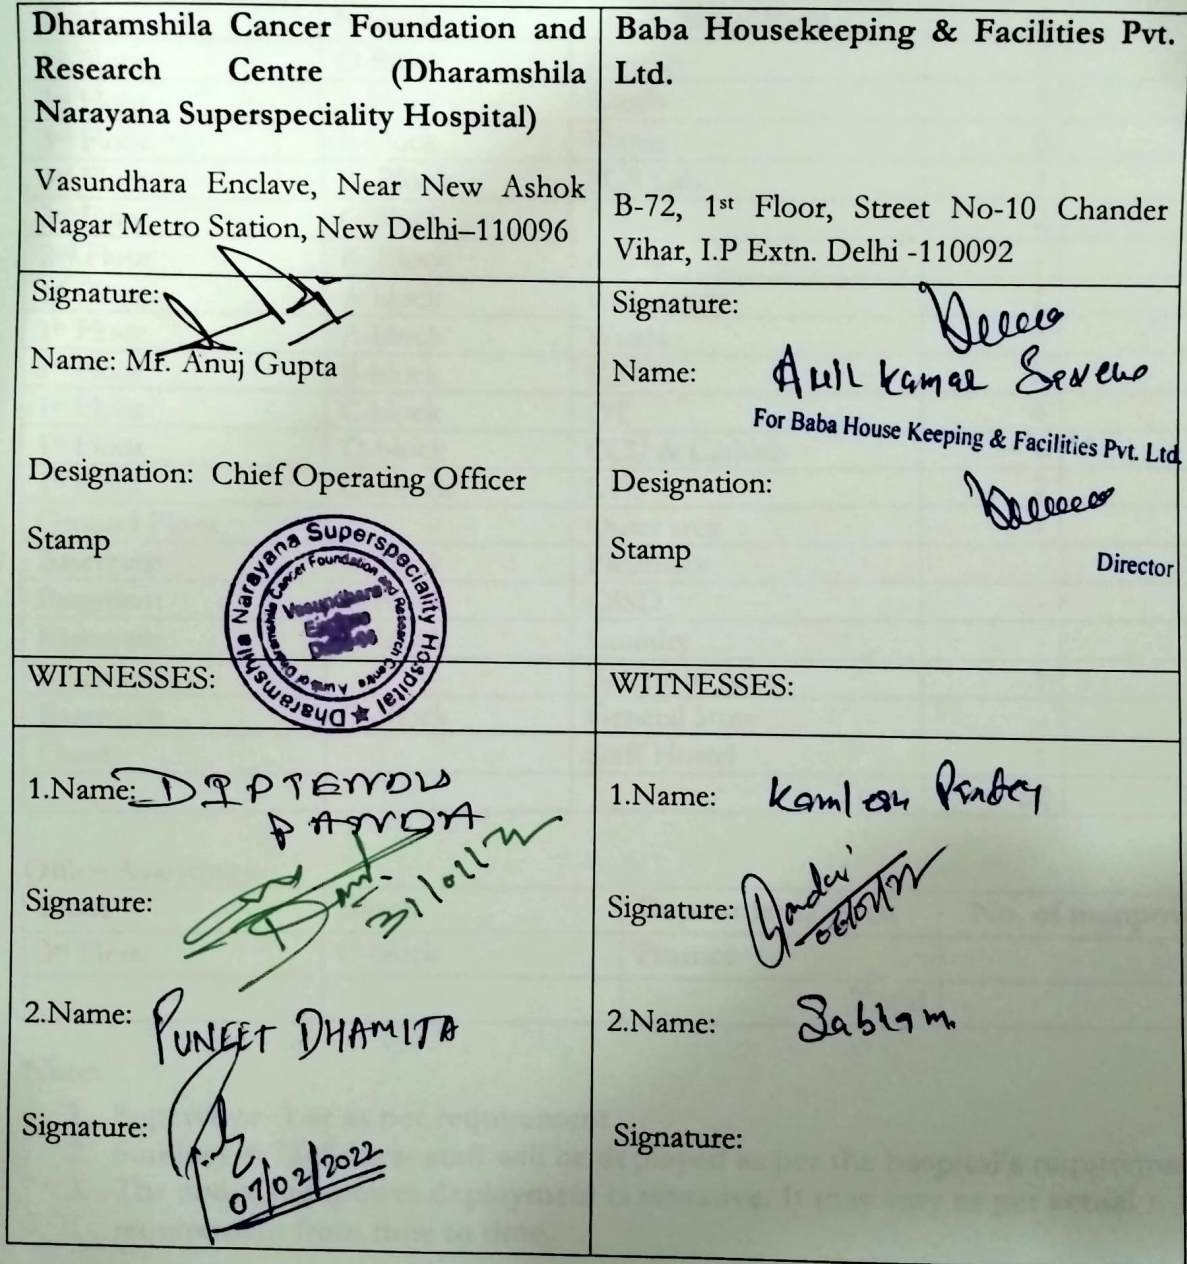 Dharamshila Cancer Foundation and
Research Centre (Dharamshila
Narayana Superspeciality Hospital)
Vasundhara Enclave, Near New Ashok
Nagar Metro Station, New Delhi–110096
Baba Housekeeping & Facilities Pvt.
Ltd.
B-72, 1st Floor, Street No-10 Chander
Vihar, I.P Extn. Delhi -110092
Signature:
Name: Mr. Anuj Gupta
Designation: Chief Operating Officer
Stamp
Dharamshila Narayana Superspeciality Hospital
A unit of Dharamshila Cancer Foundation and Research Centre
Vasundhara
Signature:
Name: Anil Kamar
For Baba House Keeping & Facilities Pvt. Ltd
Designation:
Stamp
Director
WITNESSES:
1.Name: DIPTENDU
PANDA
Signature:
31/01/22
2.Name: PUNEET DHAMIJA
Signature:
07/02/2022
WITNESSES:
1.Name: Kamlesh Pandey
Signature:
2.Name:
Signature: